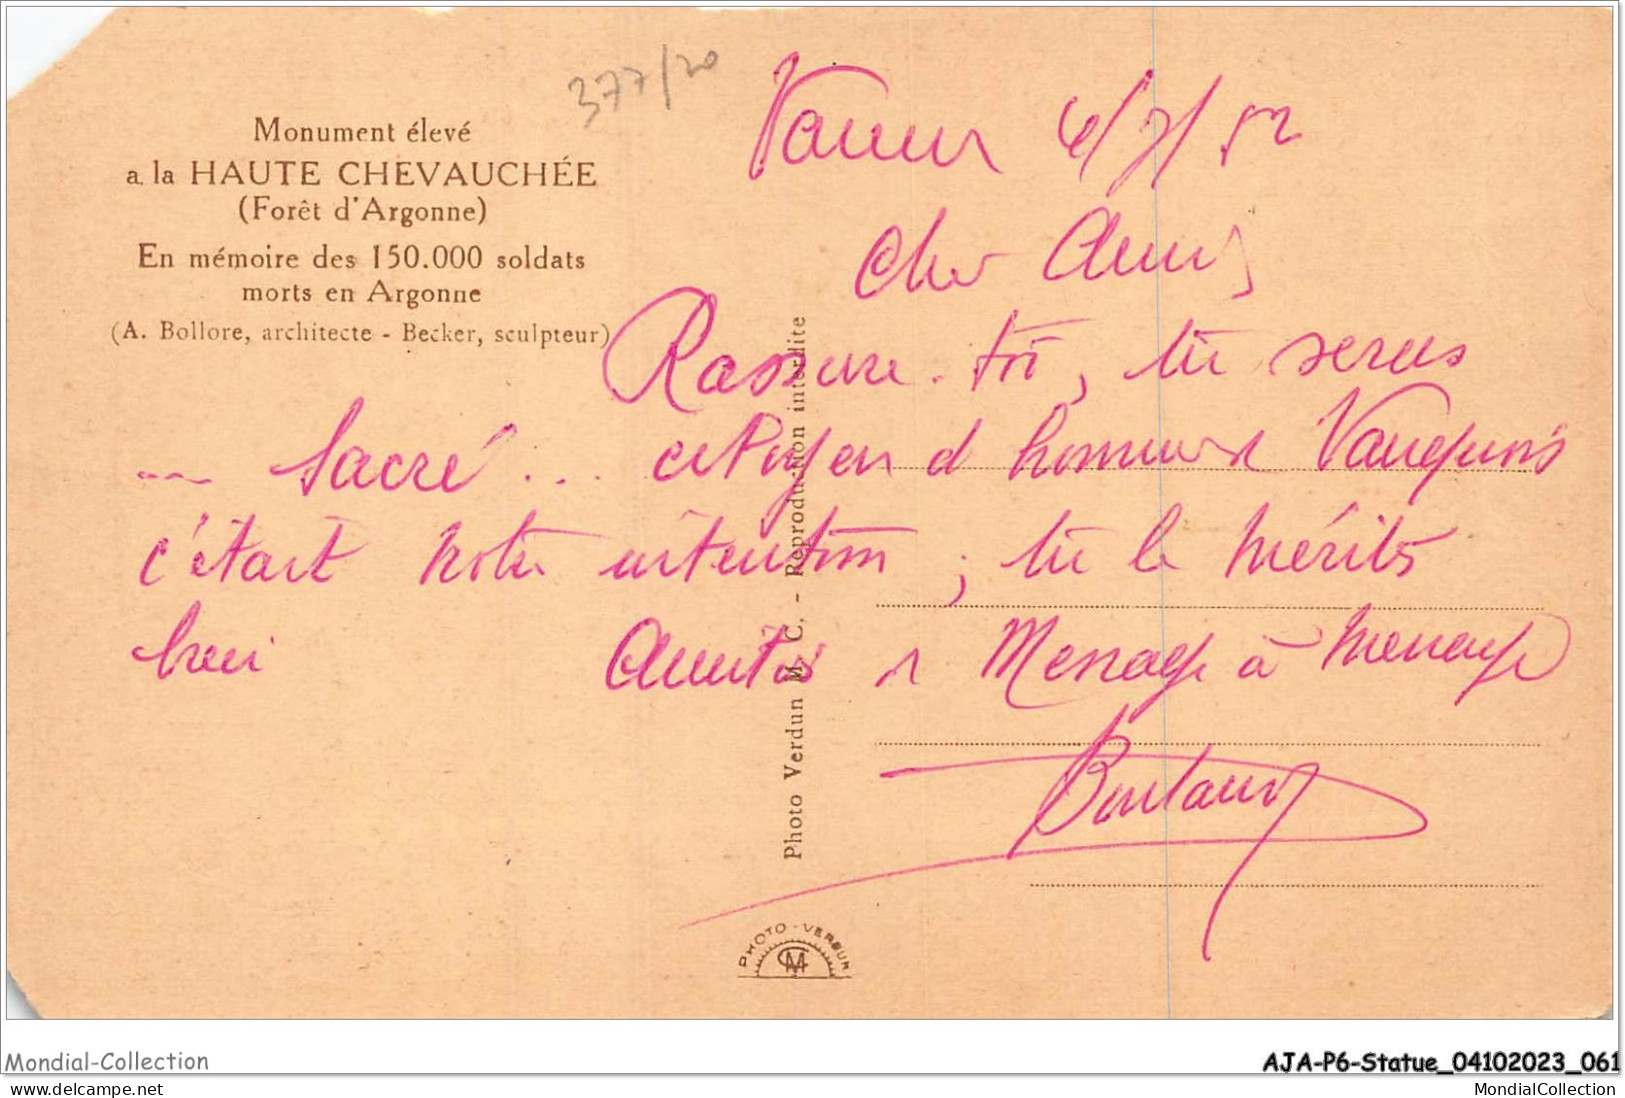 377/20
Monument élevé
a la HAUTE CHEVAUCHÉE
(Forêt d'Argonne)
En mémoire des 150.000 soldats
morts en Argonne
(A. Bollore, architecte - Becker, sculpteur)
Cher Amis
Rassure-toi, tu seras
Sacré... citoyen d honneur Vauquois
c'était notre intention, tu le mérites
bien Amitiés Menage à menage
Photo Verdun M. C. - Reproduction interdite
PHOTO - VERDUN
Mondial-Collection
AJA-P6-Statue_04102023_061
MondialCollection